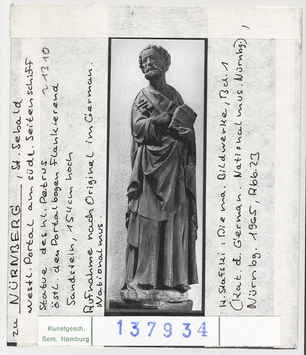 zu NÜRNBERG, St. Sebald
Westl. Portal am südl. Seitenschiff
Statue des hl. Petrus ~ 1310
östl. den Portalbogen flankierend
Sandstein, 154 cm hoch
Aufnahme nach Original im German.
Nationalmus.
H. Stafski: Die ma. Bildwerke, Bd. 1
(Kat. d. German. Nationalmus. Nürnbg)
Nürnbg. 1965, Abb. 23
Kunstgesch.
Sem. Hamburg
137934